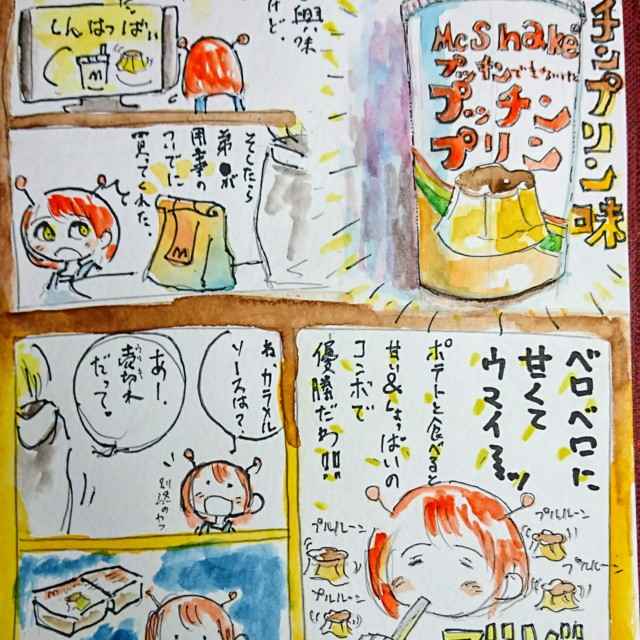 チンプリン味
McShake
プッチンできないけど
プッチン
プリン
興味
けど。
しんはつばい
M
そしたら
弟が
用事の
ついでに
買ってくれた。
M
ベロベロに
甘くて
ウマイヨッ
ポテトと食べると
甘い&しょっぱいの
コンボで
優勝だわ!!
プルルーン
プルルーン
プルルーン
プルルーン
ね、カラメル
ソースは?
別添のヤツ
あー、
売切れ
だって。